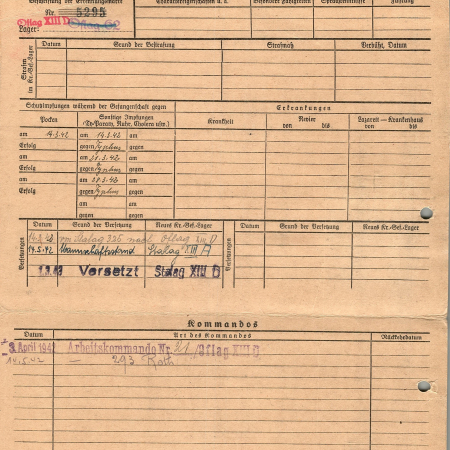 Beschriftung der Erkennungsmarke
Nr. 5295
Lager: Oflag XIII D Oflag 62
Strafen im Kr.-Gef.-Lager
Datum Grund der Bestrafung Strafmaß Verbüßt, Datum
Schutzimpfungen während der Gefangenschaft gegen Erkrankungen
Pocken Sonstige Impfungen (Ty-Paraty, Ruhr, Cholera usw.) Krankheit Revier von bis Lazarett – Krankenhaus von bis
am 14.3.42 am 14.3.42
Erfolg gegen Typhus
am am 21.3.42
Erfolg gegen Typhus
am am 28.3.42
Erfolg gegen Typhus
am
gegen
am
gegen
Versetzungen
Datum Grund der Versetzung Neues Kr.-Gef.-Lager Datum Grund der Versetzung Neues Kr.-Gef.-Lager
Stalag 326 nach Oflag XIII D
14.5.42 Stalag XIII A
1.3.43 Versetzt Stalag XIII D
Kommandos
Datum Art des Kommandos Rückkehrdatum
3. April 1942 Arbeitskommando Nr. 21 /Oflag XIII D
14.5.42 — 293 Roth